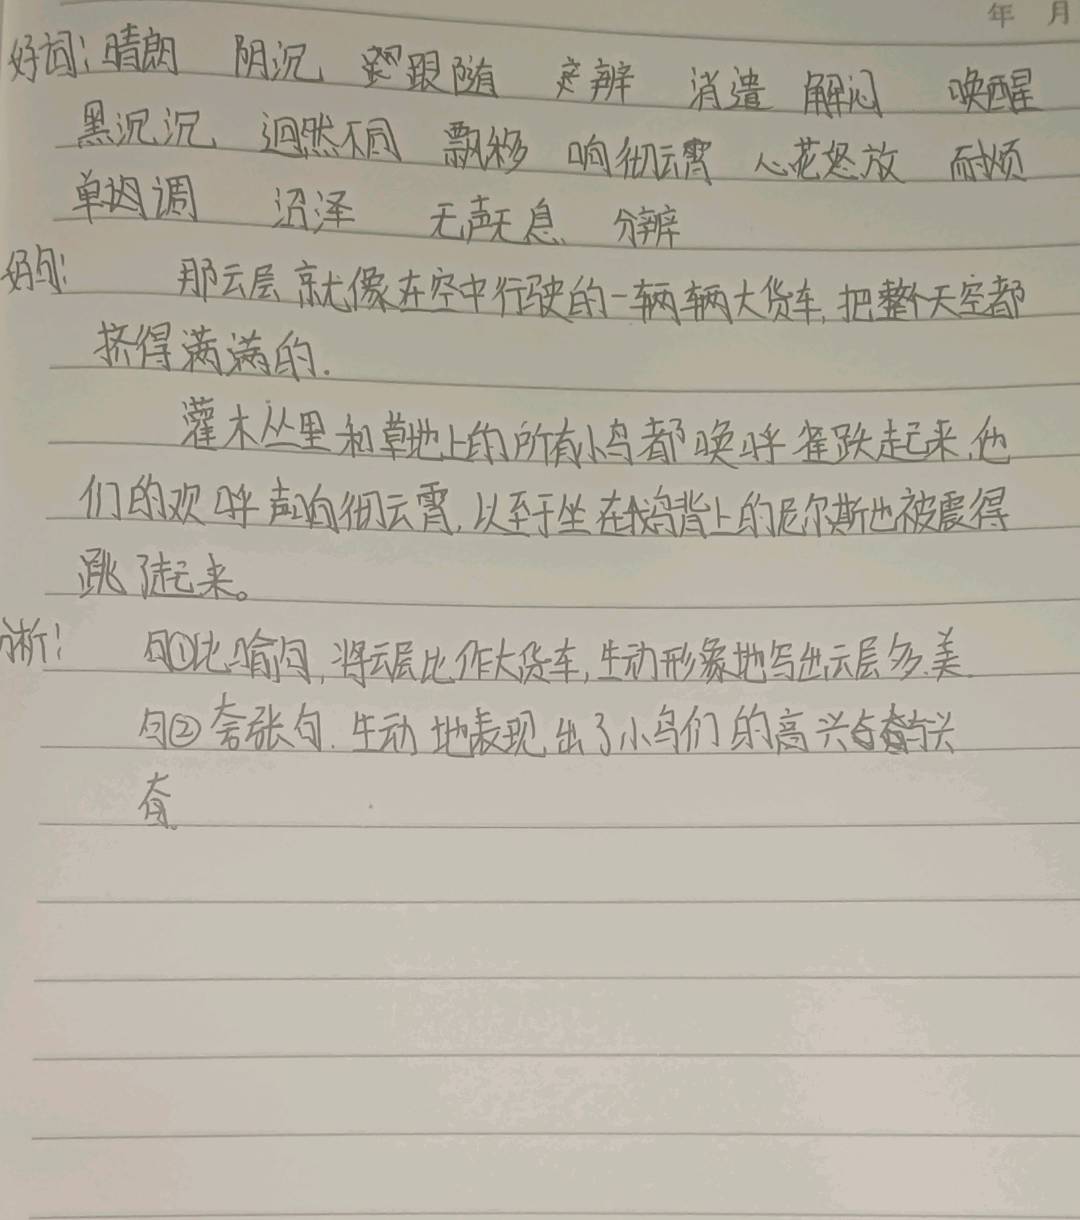 年 月
好词：晴朗 阴沉 跟随 辨 消遣 解闷 唤醒
黑沉沉 迥然不同 飘移 响彻云霄 心花怒放 耐烦
单调 沼泽 无声无息 分辨
好句： 那云层就像在空中行驶的一辆辆大货车，把整个天空都
挤得满满的.
灌木丛里和草地上的所有小鸟都唤呼雀跃起来，他
们的欢呼声响彻云霄，以至于坐在鹅背上的尼尔斯也被震得
跳了起来。
分析： 句①比喻句，将云层比作大货车，生动形象地写出云层多、美.
句②夸张句. 生动地表现出了小鸟们的高兴与兴
奋.